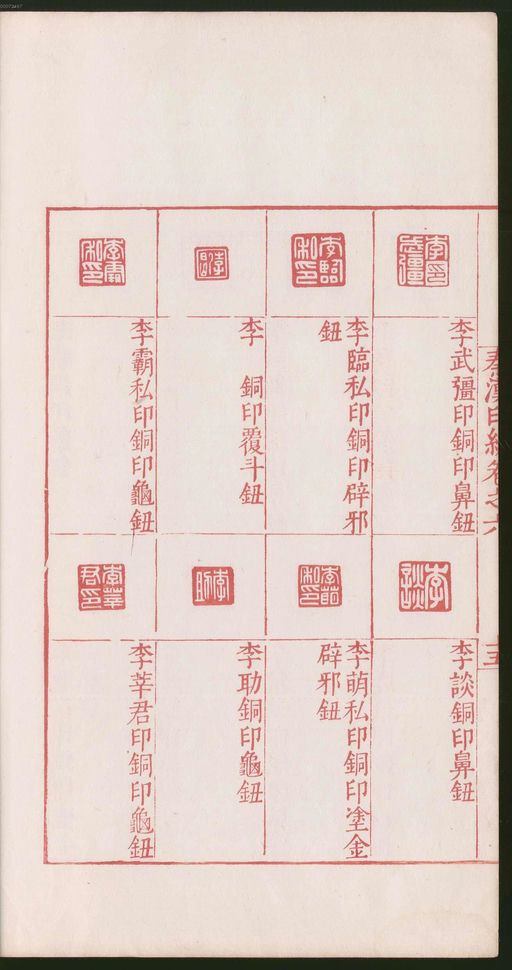 秦漢印統卷之六
十五
李武彊印銅印鼻鈕
李臨私印銅印辟邪
鈕
李 銅印覆斗鈕
李霸私印銅印龜鈕
李談銅印鼻鈕
李萌私印銅印塗金
辟邪鈕
李助銅印龜鈕
李莘君印銅印龜鈕